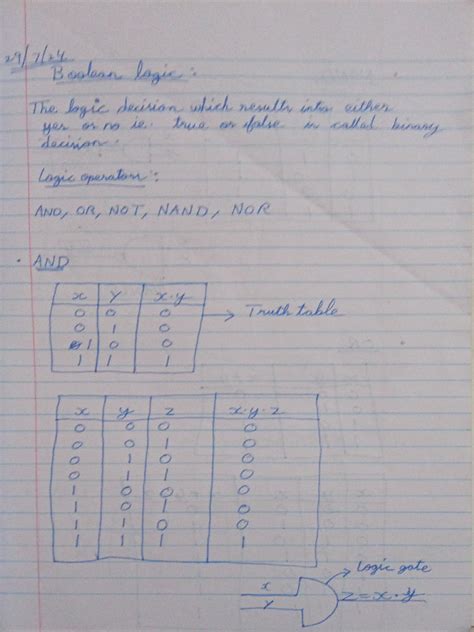 29/7/24
Boolean logic:
The logic decision which results into either
yes or no ie. true or false is called binary
decision.
Logic operators:
AND, OR, NOT, NAND, NOR
• AND
x Y x·y
0 0 0
0 1 0
1 0 0
1 1 1
→ Truth table
x y z x·y·z
0 0 0 0
0 0 1 0
0 1 0 0
0 1 1 0
1 0 0 0
1 0 1 0
1 1 0 0
1 1 1 1
Logic gate
x
Y
z = x·y